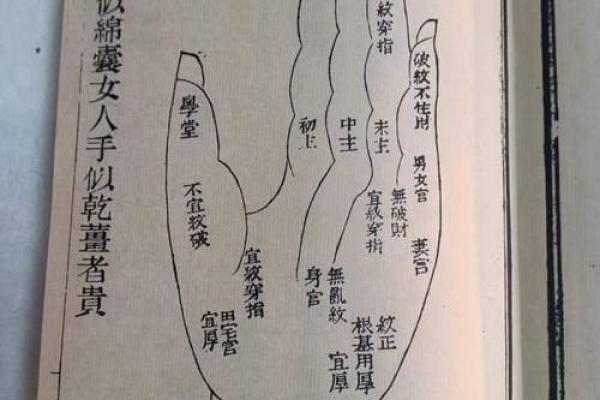 破紋不住財
男女宮
妻宮
紋穿指
末主
無破財
宜紋穿指
紋正
根基用厚
宜厚
中主
無亂紋
身宮
初主
宜紋穿指
田宅宮
宜厚
學堂
不宜紋破
似綿囊女人手似乾薑者貴